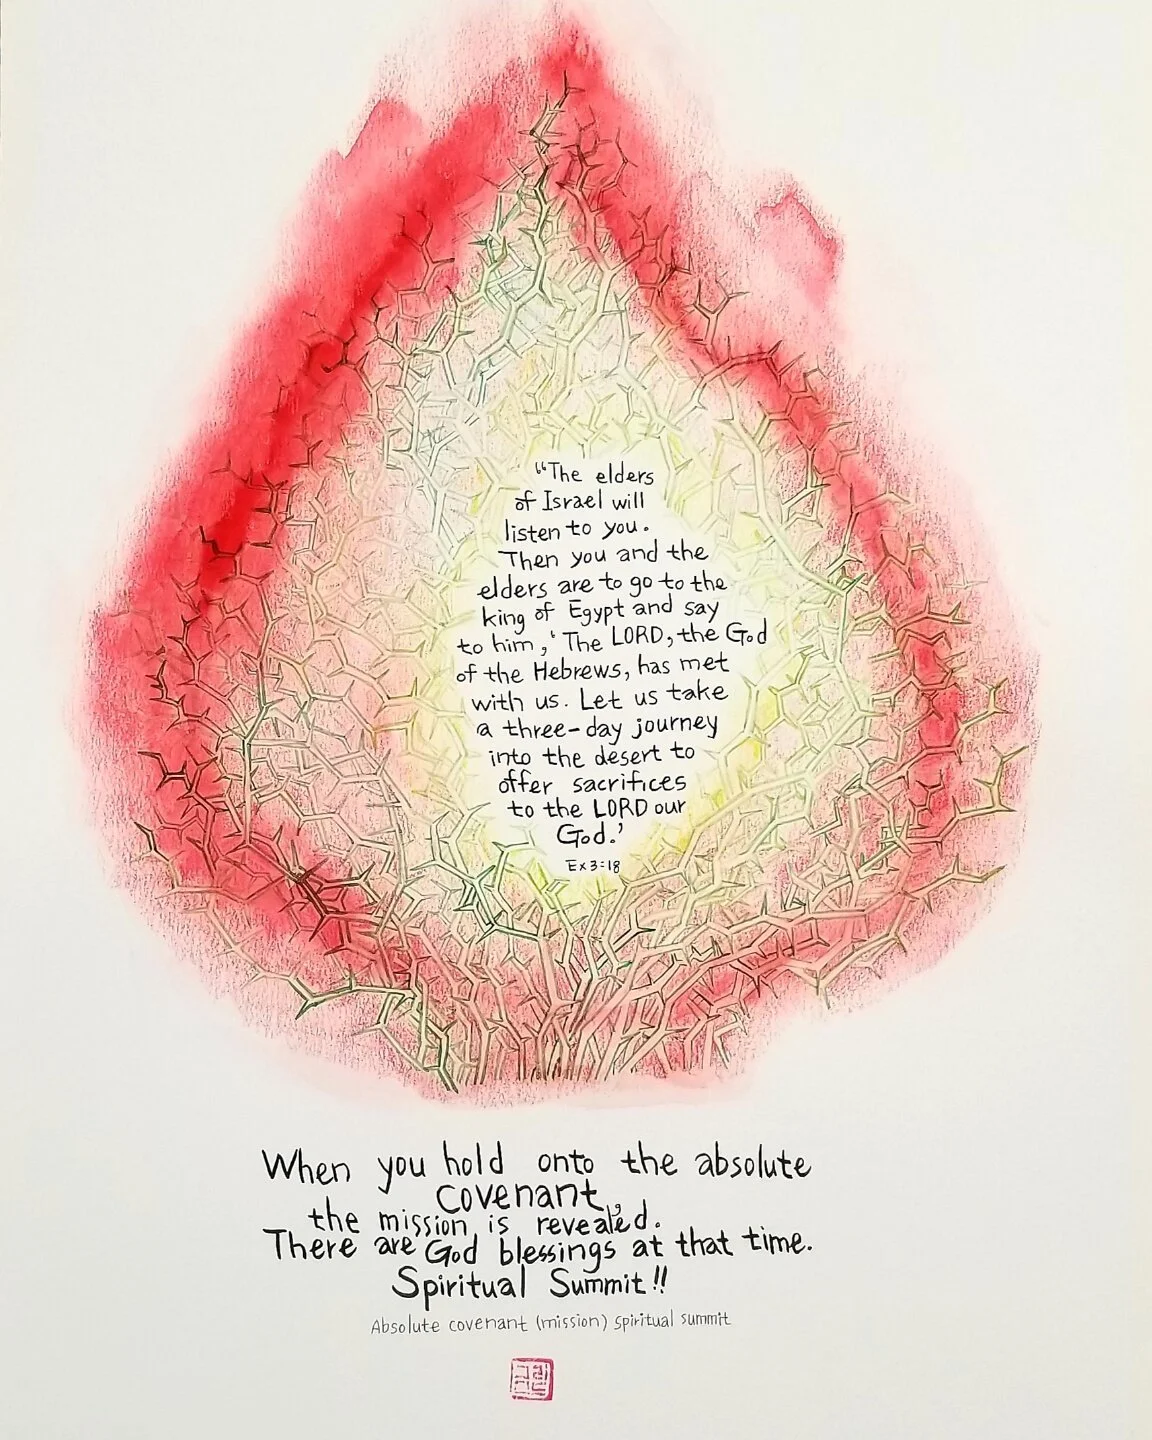 “The elders
of Israel will
listen to you.
Then you and the
elders are to go to the
king of Egypt and say
to him, ‘The LORD, the God
of the Hebrews, has met
with us. Let us take
a three-day journey
into the desert to
offer sacrifices
to the LORD our
God.’
Ex3:18
When you hold onto the absolute
covenant,
the mission is revealed.
There are God blessings at that time.
Spiritual Summit!!
Absolute covenant (mission) spiritual summit